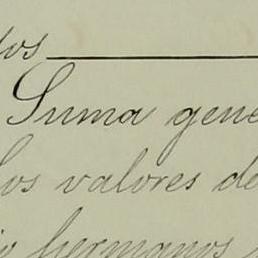 Suma gene
los valores de
hermanos